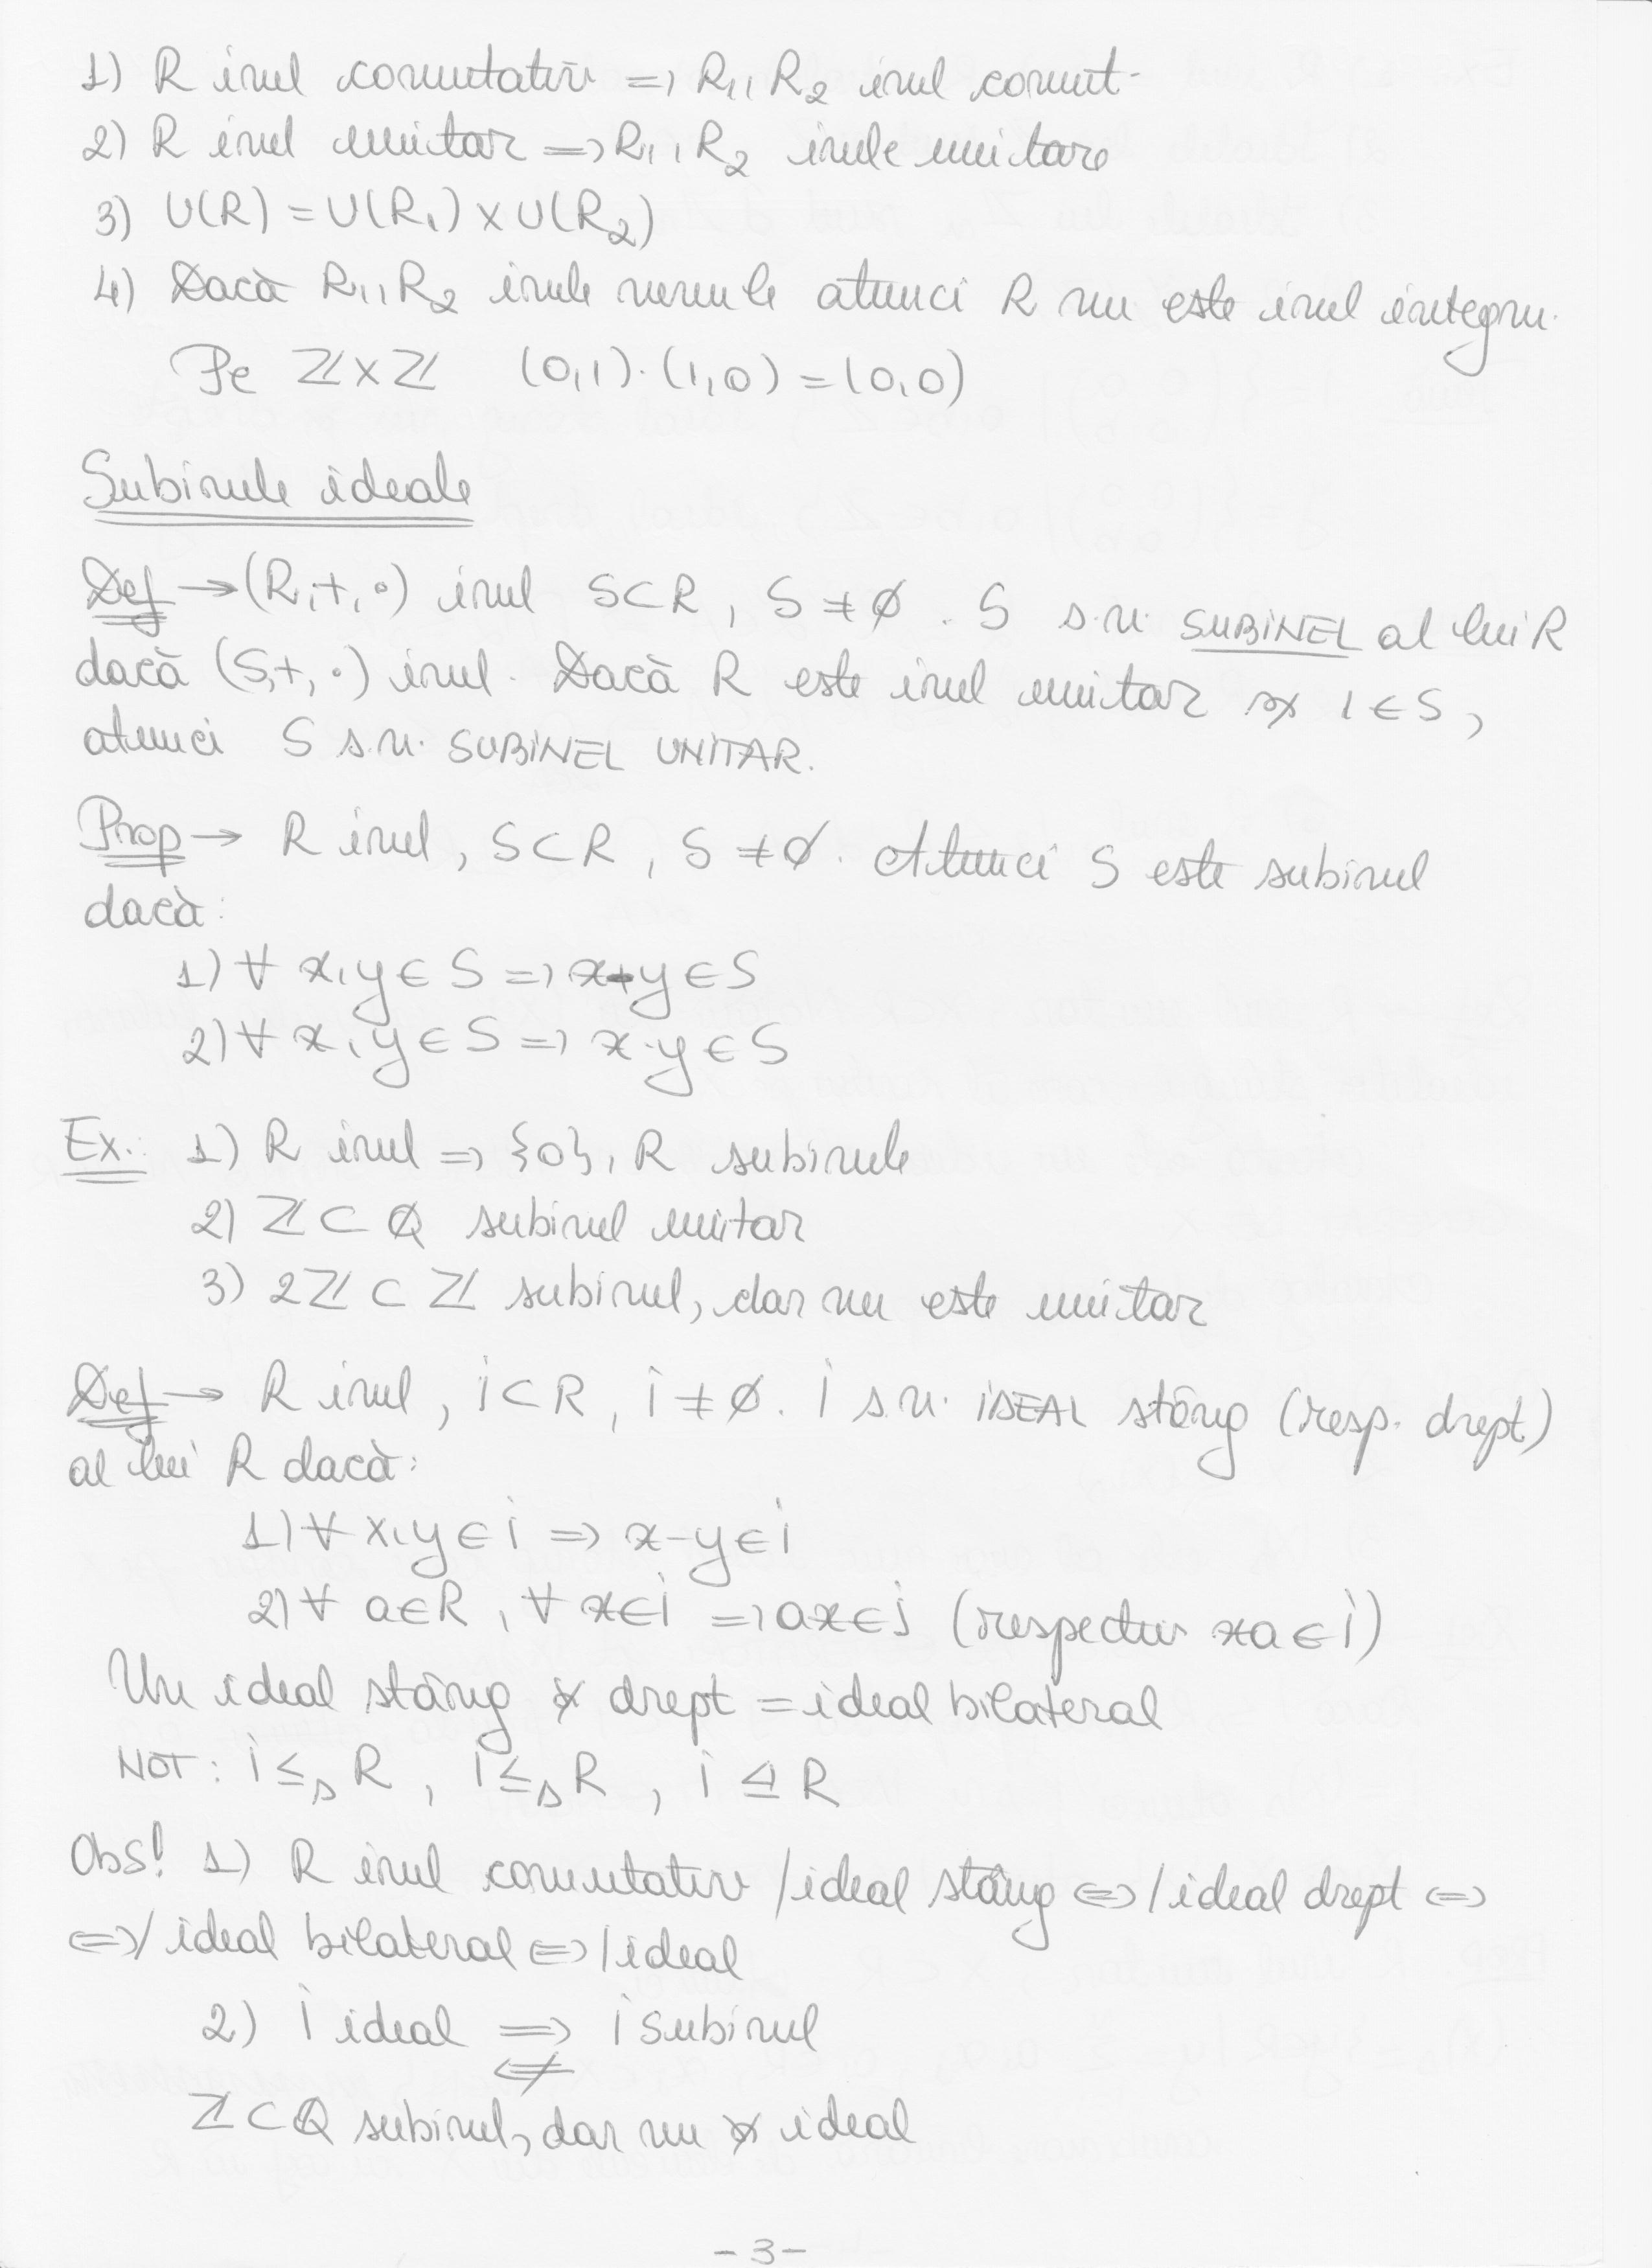 1) R inel comutativ => R₁, R₂ inel comut.
2) R inel unitar => R₁, R₂ inele unitare
3) U(R) = U(R₁) × U(R₂)
4) Dacă R₁, R₂ inele nenule atunci R nu este inel integru.
Pe ℤ×ℤ (0,1)·(1,0) = (0,0)
Subinele ideale
Def → (R,+,·) inel S⊂R, S≠∅. S s.n. SUBINEL al lui R
dacă (S,+,·) inel. Dacă R este inel unitar și 1∈S,
atunci S s.n. SUBINEL UNITAR.
Prop → R inel, S⊂R, S≠∅. Atunci S este subinel
dacă:
1) ∀ x,y∈S => x-y∈S
2) ∀ x,y∈S => x·y∈S
Ex.: 1) R inel => {0}, R subinele
2) ℤ⊂ℚ subinel unitar
3) 2ℤ⊂ℤ subinel, dar nu este unitar
Def → R inel, I⊂R, I≠∅. I s.n. IDEAL stâng (resp. drept)
al lui R dacă:
1) ∀ x,y∈I => x-y∈I
2) ∀ a∈R, ∀ x∈I => ax∈I (respectiv xa∈I)
Un ideal stâng și drept = ideal bilateral
NOT: I ≤ₛ R, I ≤ₛ R, I ⊴ R
Obs! 1) R inel comutativ / ideal stâng <=> / ideal drept <=>
<=> / ideal bilateral <=> / ideal
2) I ideal => I subinel
⇍
ℤ⊂ℚ subinel, dar nu e ideal
-3-